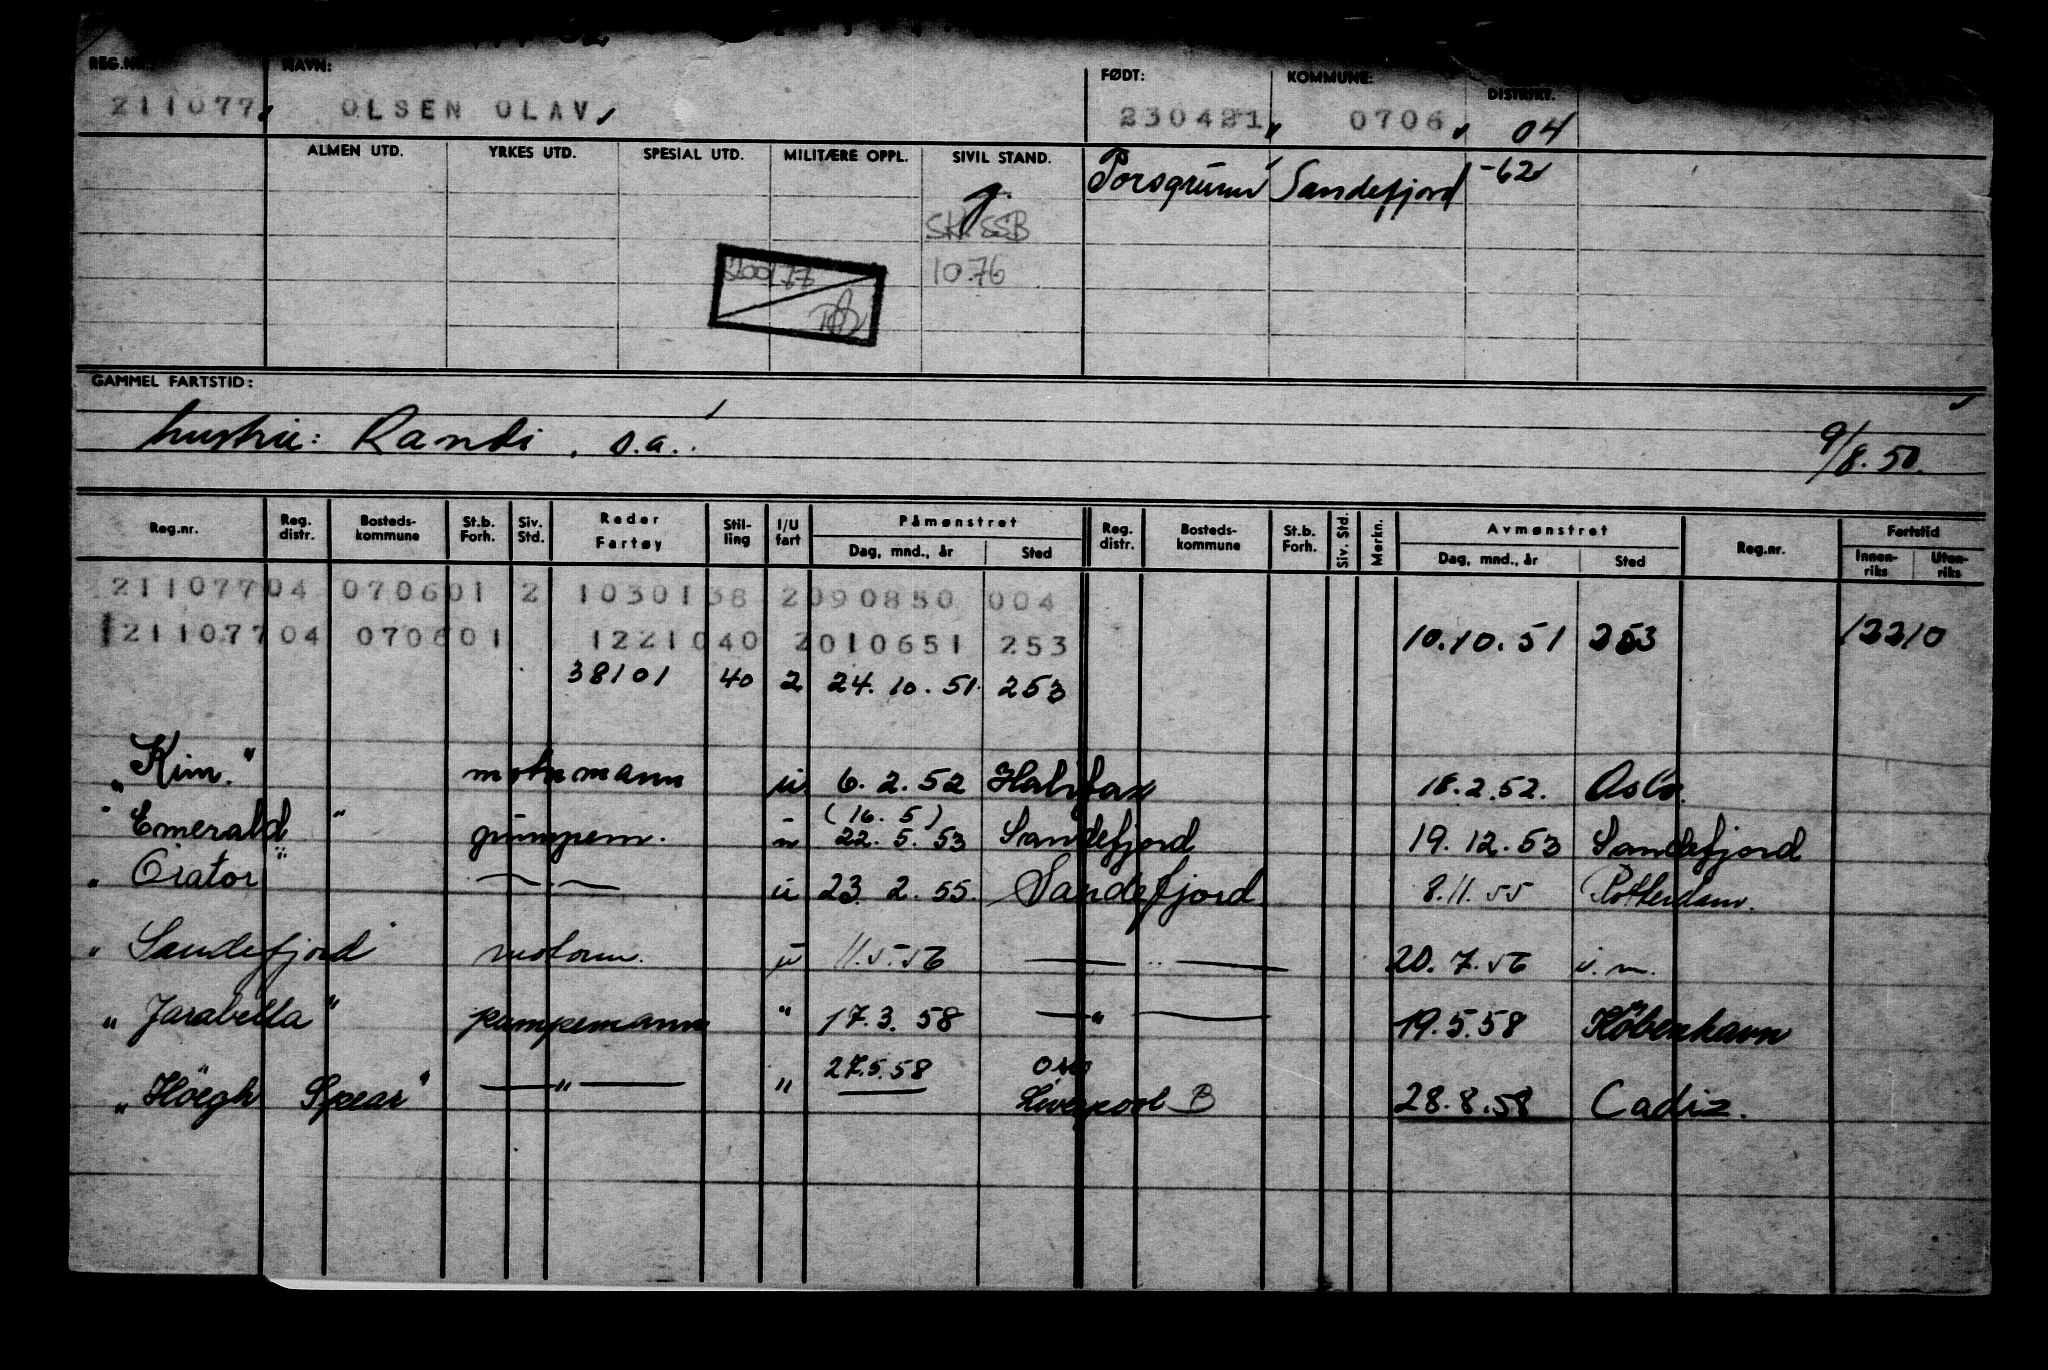 REG.NR. NAVN: FØDT: KOMMUNE: DISTRIKT.
211077 OLSEN OLAV 230421 0706 04
ALMEN UTD. YRKES UTD. SPESIAL UTD. MILITÆRE OPPL. SIVIL STAND. Porsgrunn Sandefjord -62
g.
SKI SSB
10.76
GAMMEL FARTSTID:
hustru: Randi, s.a. 9/8.50.
Reg.nr. Reg. distr. Bosteds-kommune St.b. Forh. Siv. Std. Reder Fartøy Stil-ling I/U fart Påmønstret Dag, mnd., år Sted Reg. distr. Bosteds-kommune St.b. Forh. Siv. Std. Merkn. Avmønstret Dag, mnd., år Sted Reg.nr. Fartstid Innen-riks Uten-riks
21107704 070601 2 1030138 2090850 004
21107704 070601 1221040 2010651 253 10.10.51 253 12210
38101 40 2 24.10.51 253
"Kim." motormann u 6.2.52 Halifax 18.2.52. Oslo.
(16.5)
"Emerald" pumpem. u 22.5.53 Sandefjord 19.12.53 Sandefjord
"Orator" — " — u 23.2.55. Sandefjord 8.11.55 Rotterdam.
"Sandefjord" motorm. u 11.5.56 — " — 20.7.56 u.m.
"Jarabella" pumpemann " 17.3.58 — " — 19.5.58 København
27.5.58 Oslo
"Höegh Spear" — " — " Liverpool B 28.8.58 Cadiz.